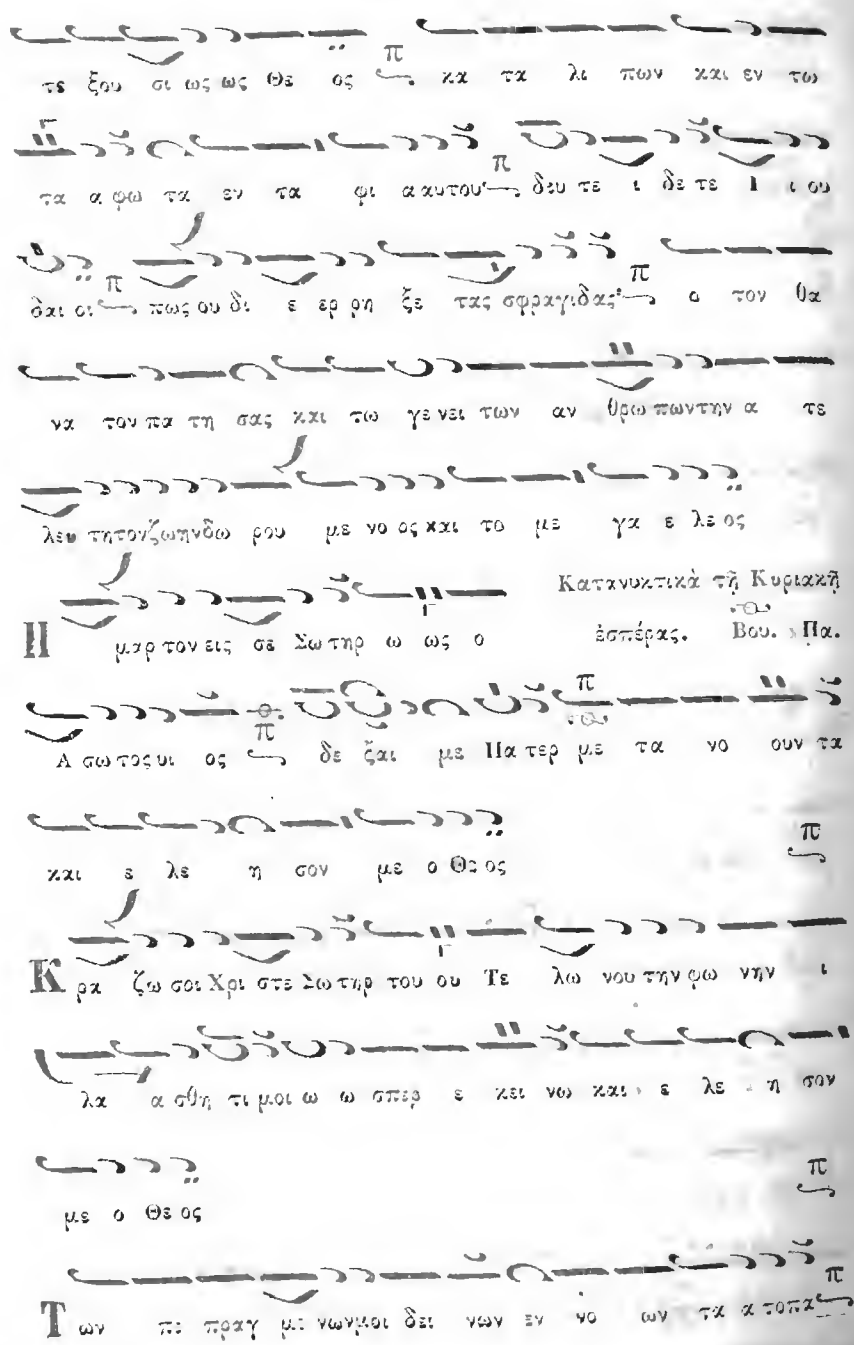 τε ξου σι ως ως Θε ος π κα τα λι πων και εν τω
τα α φω τα εν τα φι α αυτου π δευ τε ι δε τε Ι ι ου
δαι οι π πως ου δι ε ερ ρη ξε τας σφραγιδας π ο τον θα
να τον πα τη σας και τω γε νει των αν θρω πων την α τε
λευ τητον ζωην δω ρου με νο ος και το με γα ε λε ος
Κατανυκτικὰ τῇ Κυριακῇ
ἑσπέρας. Βου. Πα.
Η μαρ τον εις σε Σω τηρ ω ως ο
Α σω τος υι ος π δε ξαι με Πα τερ με τα νο ουν τα
και ε λε η σον με ο Θε ος π
Κ ρα ζω σοι Χρι στε Σω τηρ του ου Τε λω νου την φω νην ι
λα α σθη τι μοι ω ω σπερ ε κει νω και ε λε η σον
με ο Θε ος π
Τ ων πε πραγ με νων μοι δει νων εν νο ων τα α τοπα π